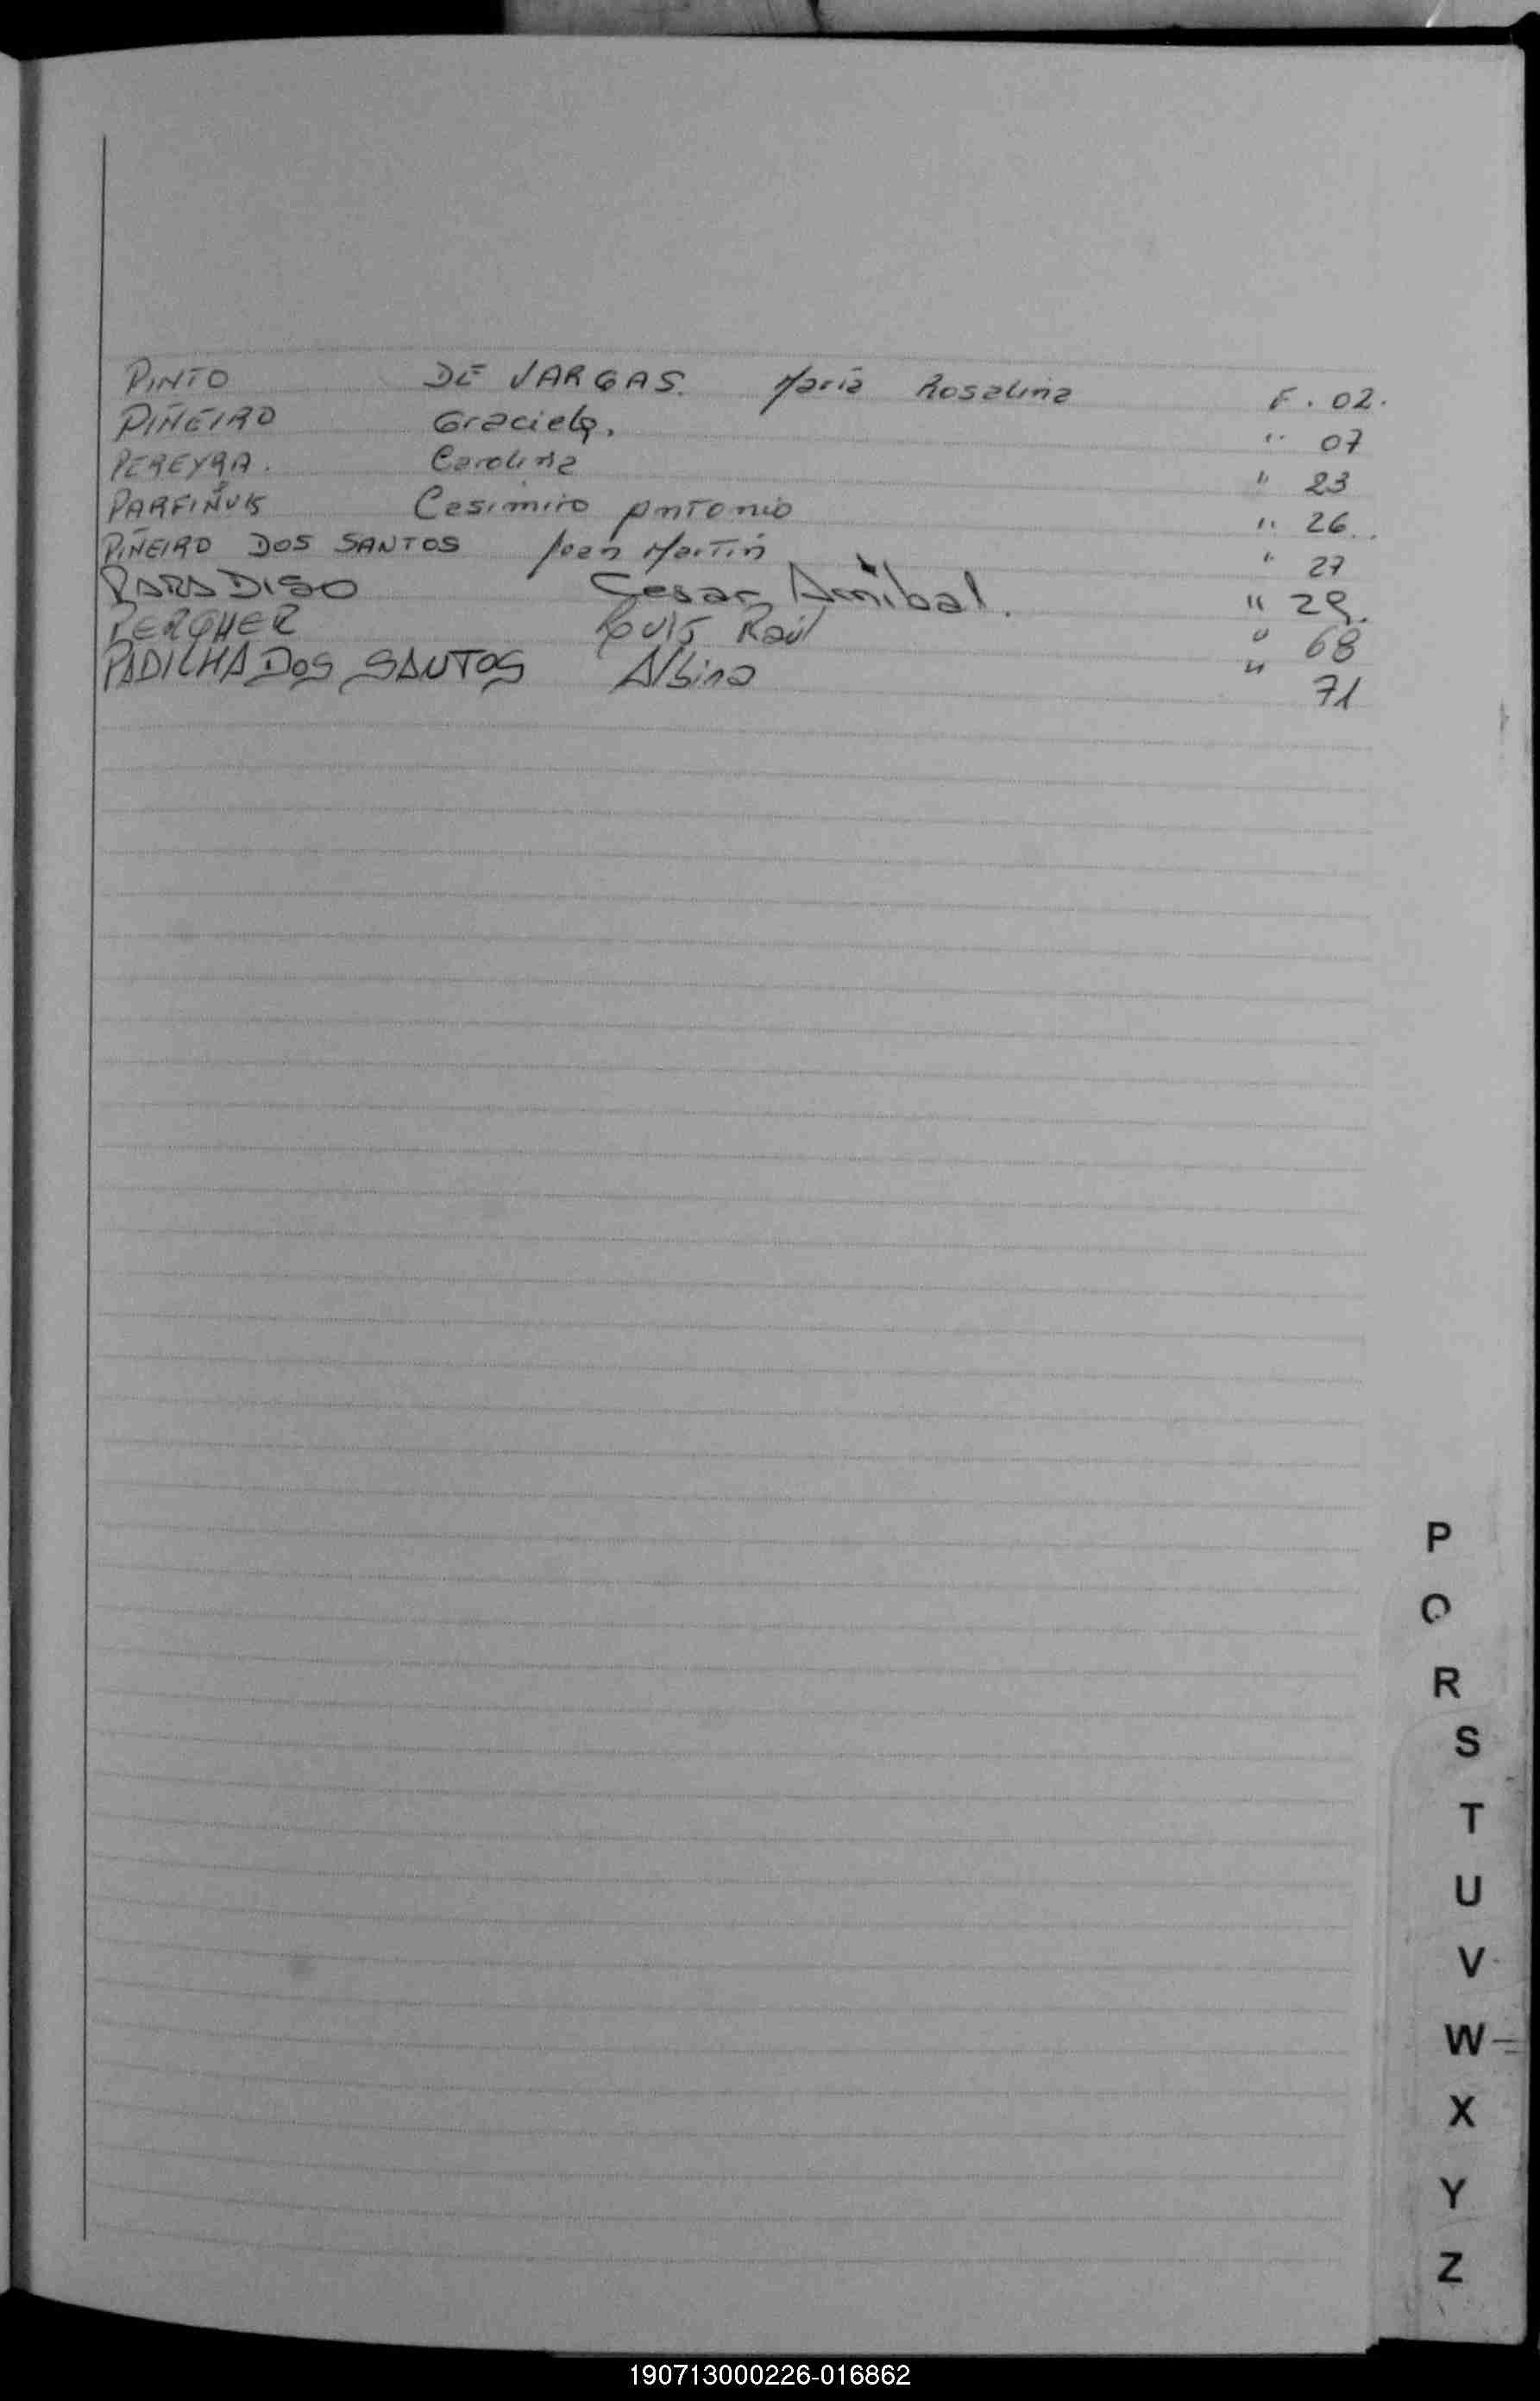 PINTO DE VARGAS. María Rosalina F. 02.
PIÑEIRO Graciela. " 07
PEREYRA. Carolina " 23
PARFIÑUK Casimiro Antonio " 26.
PIÑEIRO DOS SANTOS Juan Martín " 27
PARADISO Cesar Anibal. " 29.
PERCHER Luis Raúl " 68
PADILHA DOS SANTOS Albino " 71
P
Q
R
S
T
U
V
W
X
Y
Z
190713000226-016862